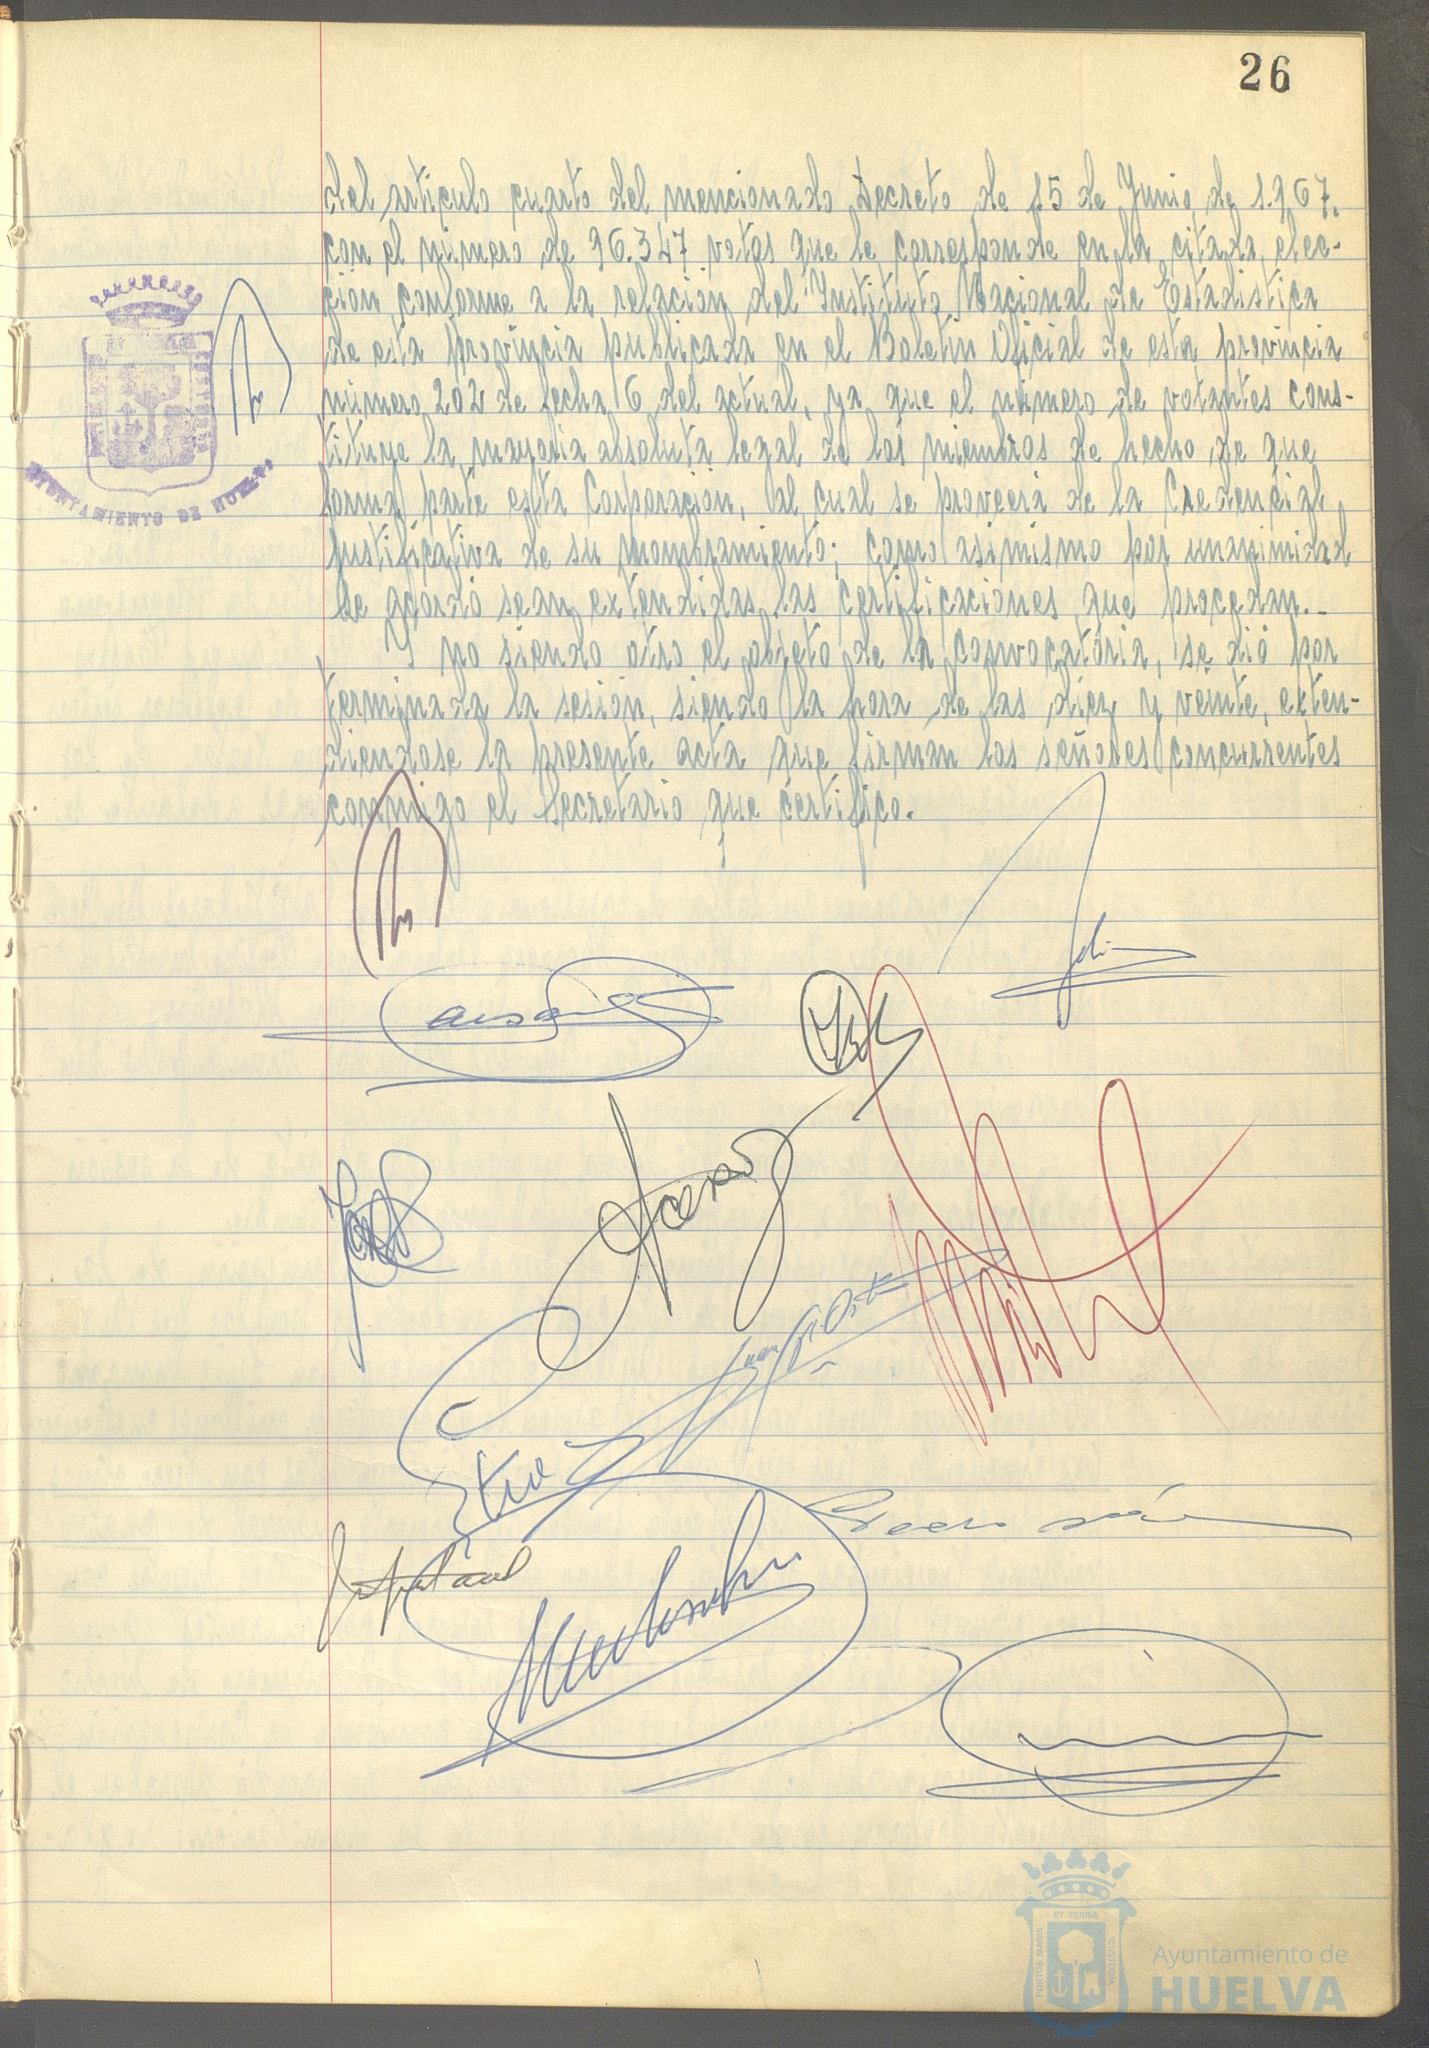 26
del articulo cuarto del mencionado Decreto de 15 de Junio de 1.967.
con el número de 96.347 votos que le corresponde en la citada elec-
ción conforme a la relación del Instituto Nacional de Estadistica
de esta provincia publicada en el Boletin Oficial de esta provincia
número 202 de fecha 6 del actual, ya que el número de votantes cons-
tituye la mayoria absoluta legal de los miembros de hecho de que
forma parte esta Corporación, al cual se proveerá de la Credencial
justificativa de su nombramiento; como asimismo por unanimidad
se acordó sean extendidas las certificaciones que procedan.-
Y no siendo otro el objeto de la convocatoria, se dió por
terminada la sesión, siendo la hora de las diez y veinte, exten-
diendose la presente acta que firman los señores concurrentes
conmigo el Secretario que certifico.
AYUNTAMIENTO DE HUELVA
PORTUS MARIS
ET TERRÆ
CUSTODIA
Ayuntamiento de
HUELVA